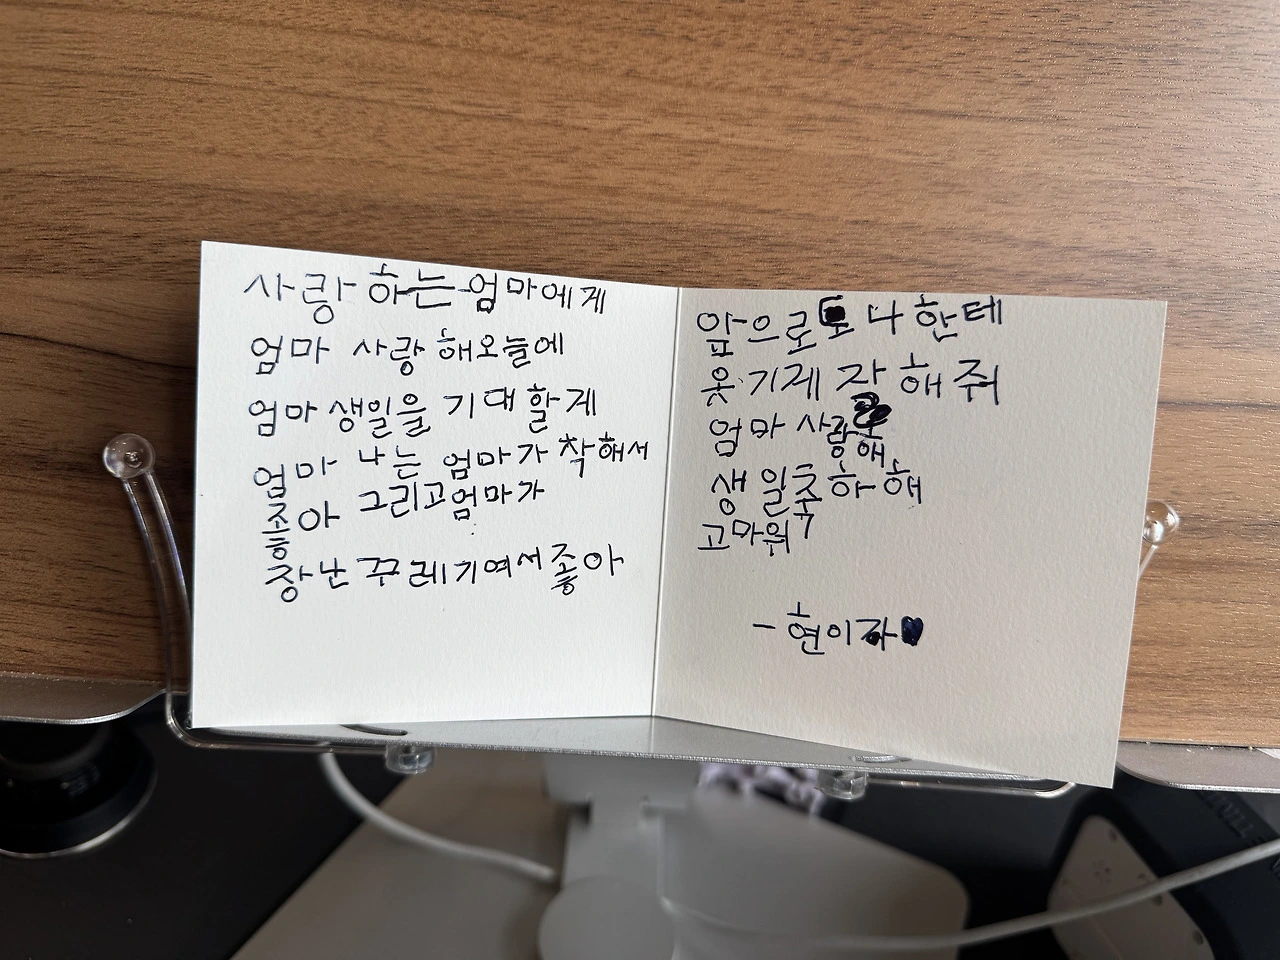 사랑하는 엄마에게
엄마 사랑해오늘에
엄마 생일을 기대할게
엄마 나는 엄마가 착해서
좋아 그리고엄마가
장난꾸레기여서좋아
앞으로도 나한테
웃기게 잘해줘
엄마 사랑해
생일축하해
고마워
- 현이가